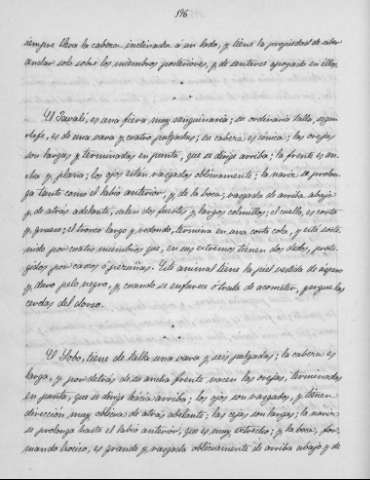 196
siempre lleva la cabeza inclinada á un lado, y tiene la propiedad de saber
andar solo sobre los miembros posteriores, y de sentirse apoyado en ellos.
El Javalí, es una fiera muy sanguinaria; su ordinaria talla, segun
es de una vara y cuatro pulgadas; su cabeza es cónica; las orejas
son largas y terminadas en punta, que se dirige arriba; la frente es an-
cha y plana; los ojos estan rasgados oblicuamente; la nariz se prolon-
ga tanto como el labio anterior, y de la boca, rasgada de arriba abajo
y de atrás adelante, salen dos fuertes y largos colmillos; el cuello, es corto
y grueso; el tronco largo y redondo, termina en una corta cola, y está soste-
nido por cuatro miembros que, en sus extremos tienen dos dedos, prote-
gidos por cascos ó pezuñas. Este animal tiene la piel vestida de áspero
y duro pelo negro, y cuando se enfurece ó trata de acometer, yergue las
cerdas del dorso.
El Lobo, tiene de talla una vara y seis pulgadas; la cabeza es
larga, y por detrás de su ancha frente nacen las orejas, terminadas
en punta, que se dirige hácia arriba; los ojos son rasgados, y tienen
dirección, muy oblicua de atrás adelante; las cejas son largas; la nariz
se prolonga hasta el labio anterior, que es muy estrecho; y la boca, for-
mando hocico, es grande y rasgada oblicuamente de arriba abajo y de